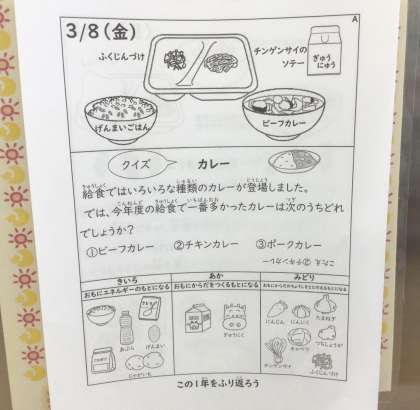 3/8(金)
A
ふくじんづけ
チンゲンサイの
ソテー
ぎゅう
にゅう
げんまいごはん
ビーフカレー
クイズ
カレー
給食ではいろいろな種類のカレーが登場しました。
では、今年度の給食で一番多かったカレーは次のうちどれ
でしょうか?
①ビーフカレー ②チキンカレー ③ポークカレー
こたえ ②チキンカレー
きいろ
あか
みどり
おもにエネルギーのもとになる
おもにからだをつくるもとになる
おもにからだのちょうしをととのえるもとになる
あぶら
げんまい
じゃがいも
ぎゅうにく
にんじん
にんにく
たまねぎ
キャベツ
しょうが
チンゲンサイ
ふくじんづけ
この1年をふり返ろう